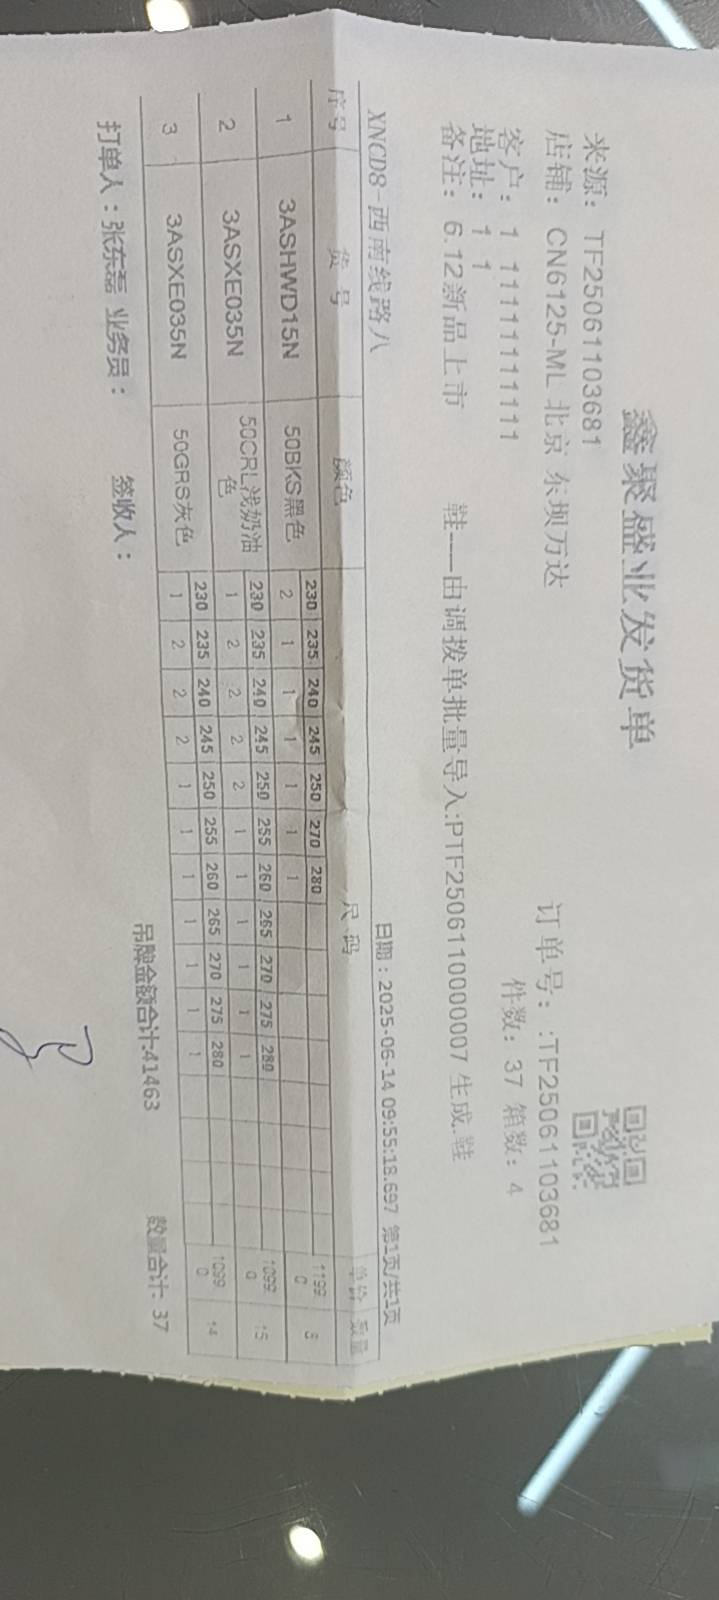 鑫聚盛业发货单
来源: TF25061103681
店铺: CN6125-ML 北京 东坝万达 订单号: :TF25061103681
客户: 1 11111111111 件数: 37 箱数: 4
地址: 1 1
备注: 6.12新品上市 鞋---由调拨单批量导入:PTF2506110000007 生成.鞋
XNCD8-西南线路八 日期: 2025-06-14 09:55:18.697 第1页/共1页
序号 货 号 颜色 尺 码 单价 数量
230 235 240 245 250 270 280
1 3ASHWD15N 50BKS黑色 2 1 1 1 1 1 1 1199.0 8
230 235 240 245 250 255 260 265 270 275 280
2 3ASXE035N 50CRL浅奶油色 1 2 2 2 2 1 1 1 1 1 1 1099.0 15
230 235 240 245 250 255 260 265 270 275 280
3 3ASXE035N 50GRS灰色 1 2 2 2 1 1 1 1 1 1 1 1099.0 14
吊牌金额合计:41463 数量合计: 37
打单人: 张东磊 业务员: 签收人: